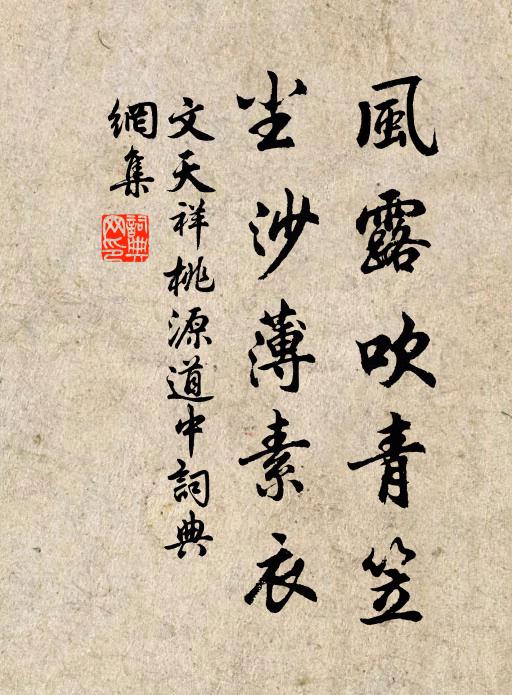 風露吹青笠
尘沙薄素衣
文天祥桃源道中詞典
網集
詞典
网印